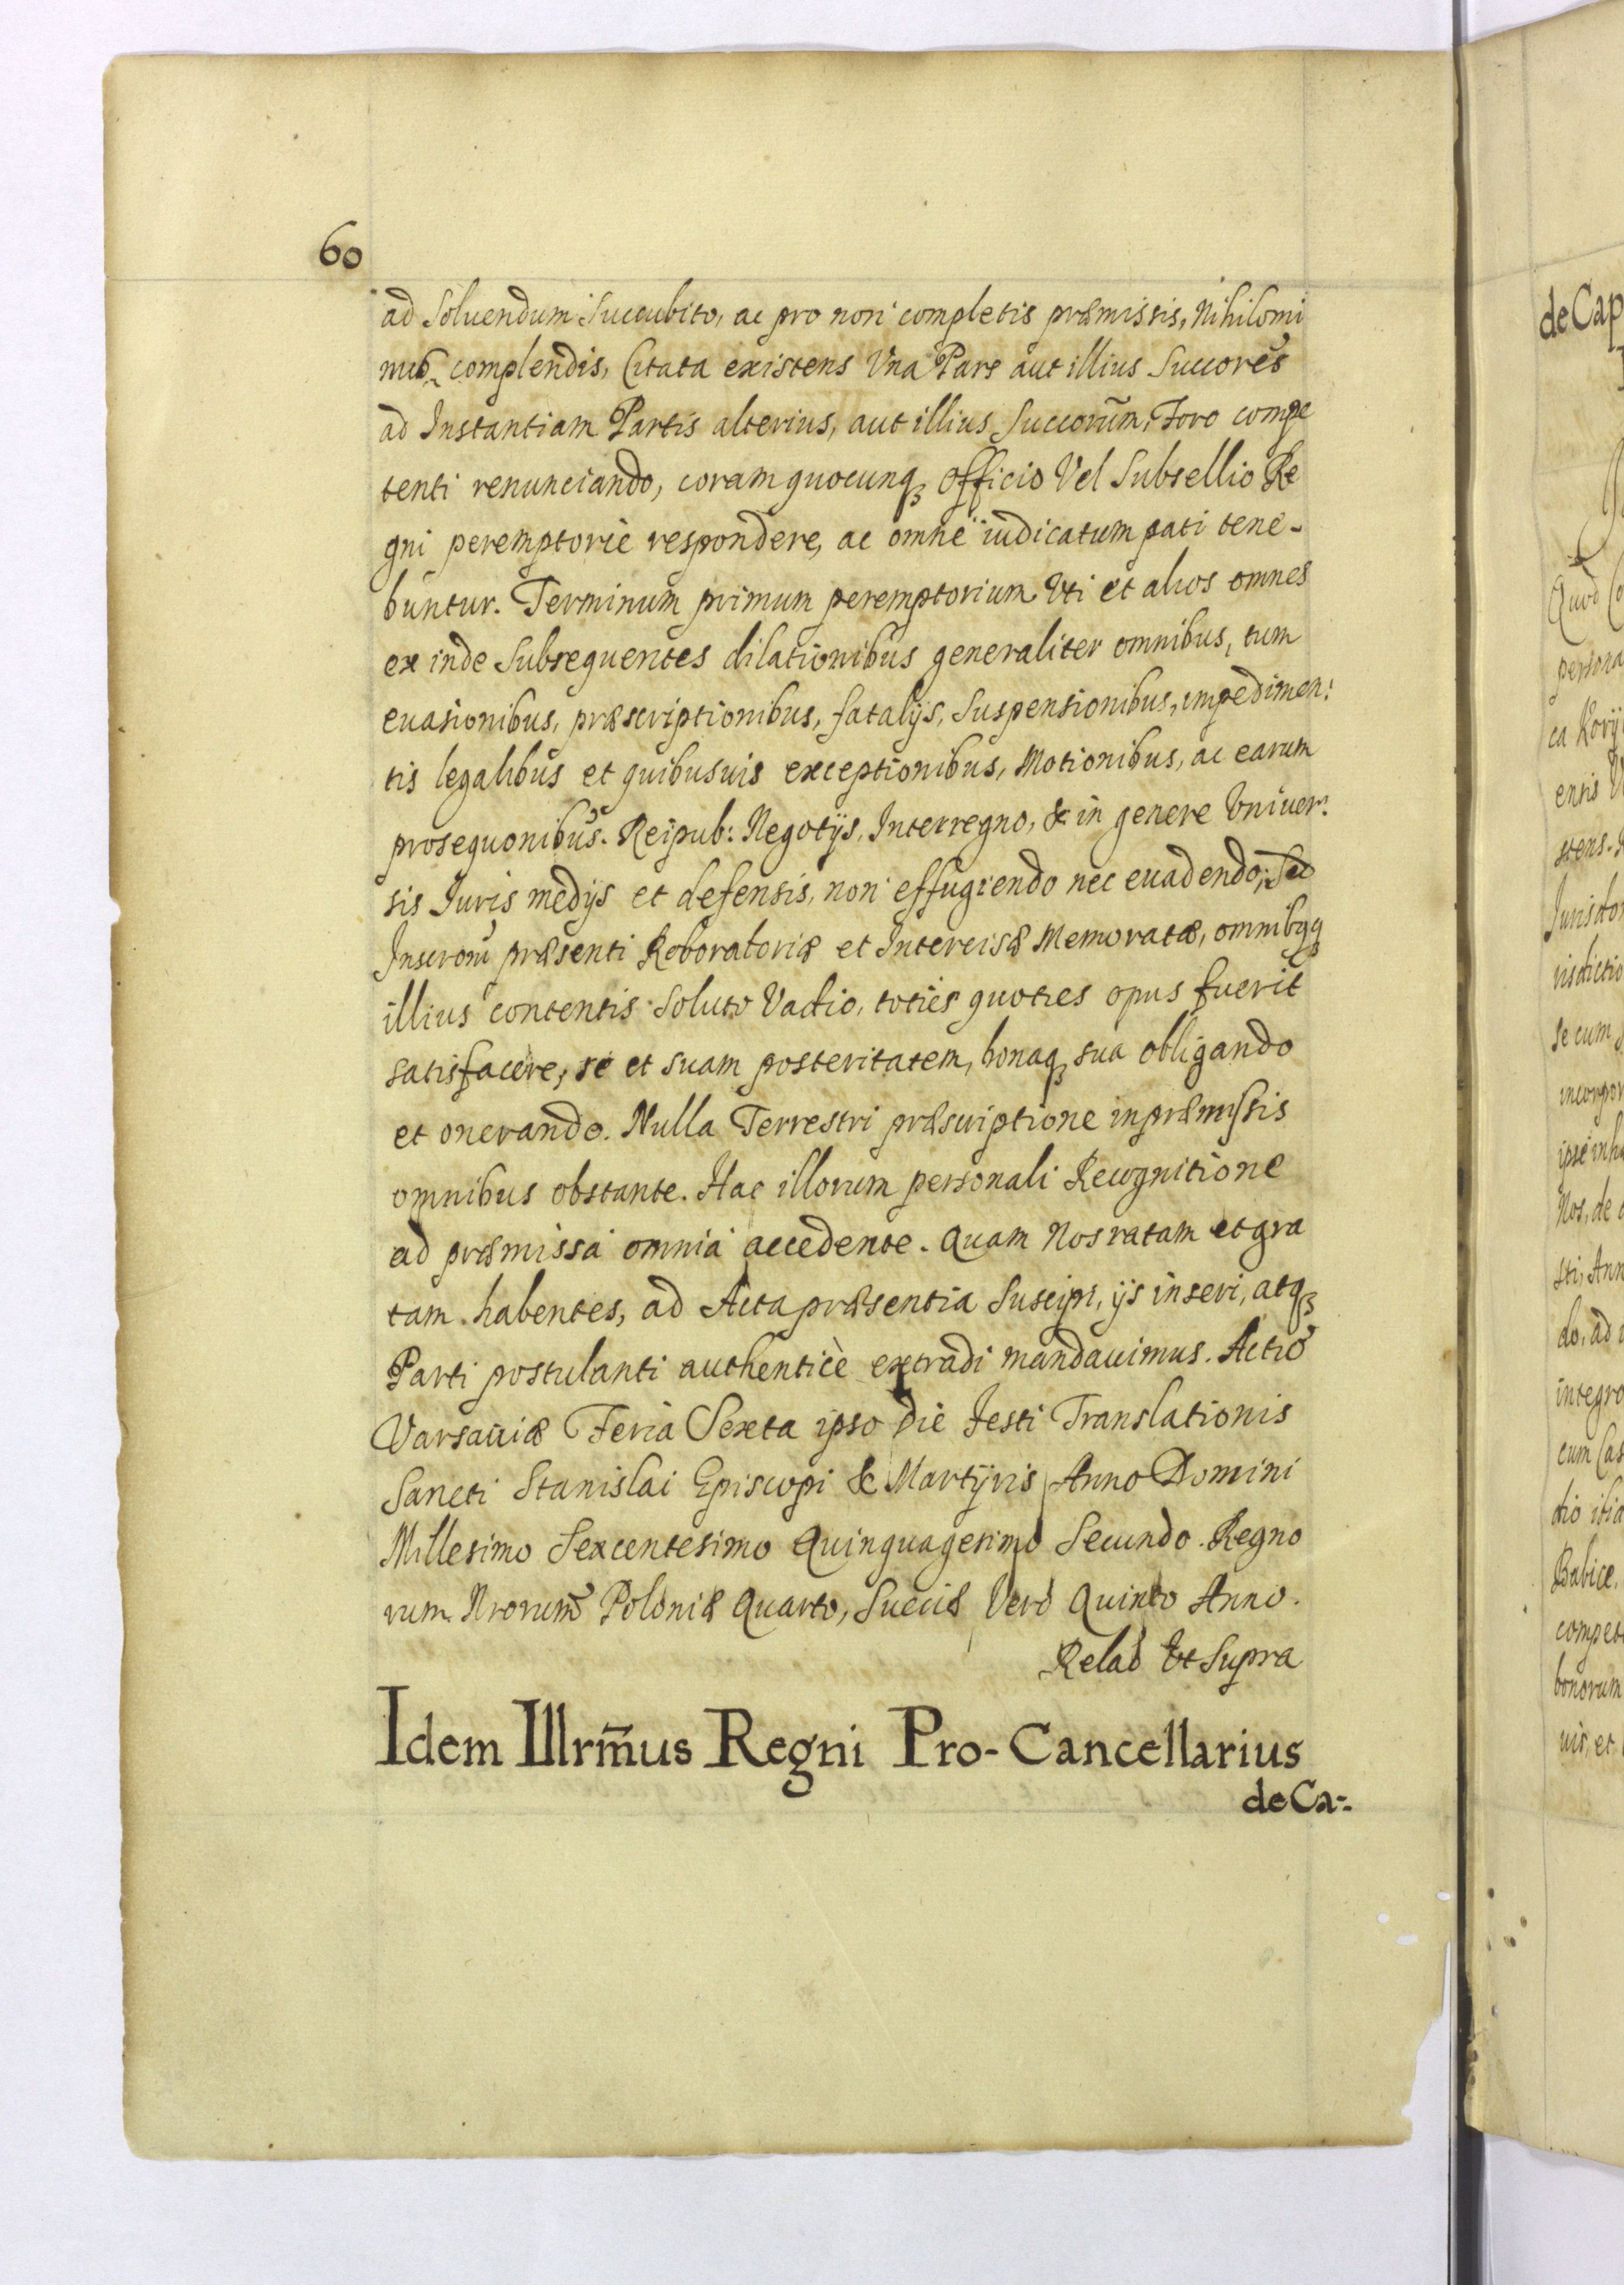 60
ad Soluendum Succubito, ac pro non completis præmissis, Nihilomi
nus complendis, Citata existens Vna Pars aut illius Succores
ad Instantiam Partis alterius, aut illius Succorum, Foro compe
tenti renunciando, coram quocunq3 officio Vel Subsellio Re
gni peremptorie respondere, ac omne iudicatum pati tene-
buntur. Terminum primum peremptorium Vti et alios omnes
ex inde Subsequentes dilationibus generaliter omnibus, tum
euasionibus, præscriptionibus, fatalijs, Suspensionibus, impedimen:
tis legalibus et quibusuis exceptionibus, Motionibus, ac earum
prosequonibus. Reipub: Negotijs, Interregno, & in genere Vniuer:
sis Iuris medijs et defensis, non effugiendo nec euadendo, Sed
Inscroni præsenti Roboratoriæ et Intercisæ Memoratæ, omnibqq3
illius contentis Soluto Vadio, toties quoties opus fuerit
satisfacere, se et suam posteritatem, bonaq3 sua obligando
et onerando. Nulla Terrestri præscriptione in præmissis
omnibus obstante. Hac illorum personali Recognitione
ad præmissa omnia accedente. Quam Nos ratam et gra
tam habentes, ad Acta præsentia Suscipi, ijs inseri, atq3
Parti postulanti authenticè extradi mandauimus. Actio
Varsauiæ Feria Sexta ipso die Festi Translationis
Sancti Stanislai Episcopi & Martÿris Anno Domini
Millesimo Sexcentesimo Quinquagesimo Secundo. Regno
rum Nrorum Poloniæ Quarto, Sueciæ Vero Quinto Anno.
Relao Vt Supra
Idem Illrm̃us Regni Pro-Cancellarius
de Ca:
de Cap
Quod Co
persona
ca Korÿ
ensis V
stens.
Jurisdo
risdictio
se cum
incorpor
ipse inh
Nos, de
sti, Ann
do, ad
integro
cum Cas
dio
Babice.
compet
bonorum
uis, et